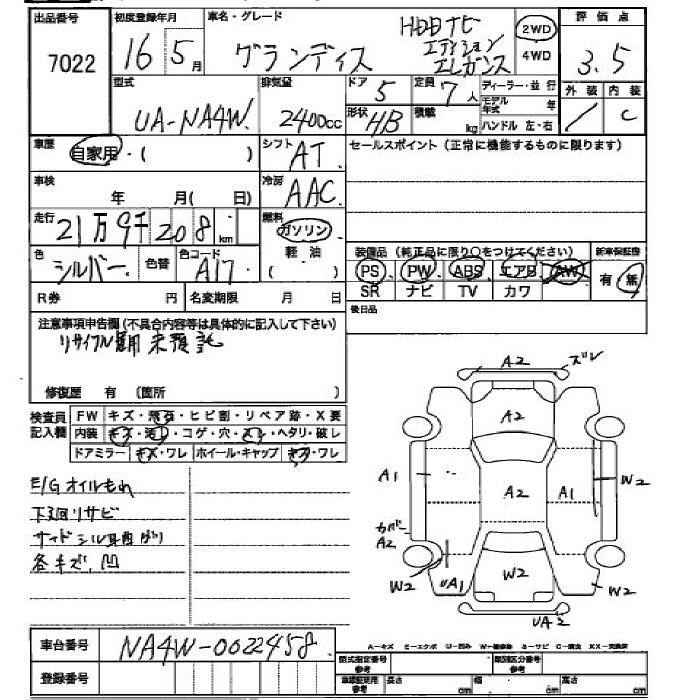 出品番号 初度登録年月 車名・グレード 評価点
7022 16 5月 グランディス HDDナビ エディション エレガンス 2WD 4WD 3.5
型式 排気量 ドア 定員 ディーラー・並行 外装 内装
UA-NA4W. 2400cc 5 7人 モデル年式 年 / C
形状 HB 積載 kg ハンドル 左・右
車歴 自家用・( ) シフト AT. セールスポイント（正常に機能するものに限ります）
車検 年 月( 日) 冷房 AAC.
走行 21万9千208km 燃料 ガソリン・軽油 ( )
装備品（純正品に限り○をつけてください） 新車保証書
色 シルバー. 色替 色コード A17
PS PW ABS エアB AW 有・無
SR ナビ TV カワ
R券 円 名変期限 月 日
後日品
注意事項申告欄（不具合内容等は具体的に記入して下さい）
リサイクル費用 未預託
修復歴 有（箇所 ）
検査員記入欄 FW キズ・飛石・ヒビ割・リペア跡・X要
内装 キズ・汚レ・コゲ・穴・スレ・ヘタリ・破レ
ドアミラー キズ・ワレ ホイール・キャップ キズ・ワレ
E/Gオイルもれ
下廻りサビ
サイドシル曲り
各キズ、凹
A2 ズレ
A2
A1 A2 A1 W2
カバー A2
W2 UA1 W2 W2
UA2
A-キズ E-エクボ U-凹み W-補修跡 S-サビ C-腐食 XX-交換済
車台番号 NA4W-0022458.
型式指定番号 参考 類別区分番号 参考
登録番号
車検証現用 参考 長さ cm 幅 cm 高さ cm